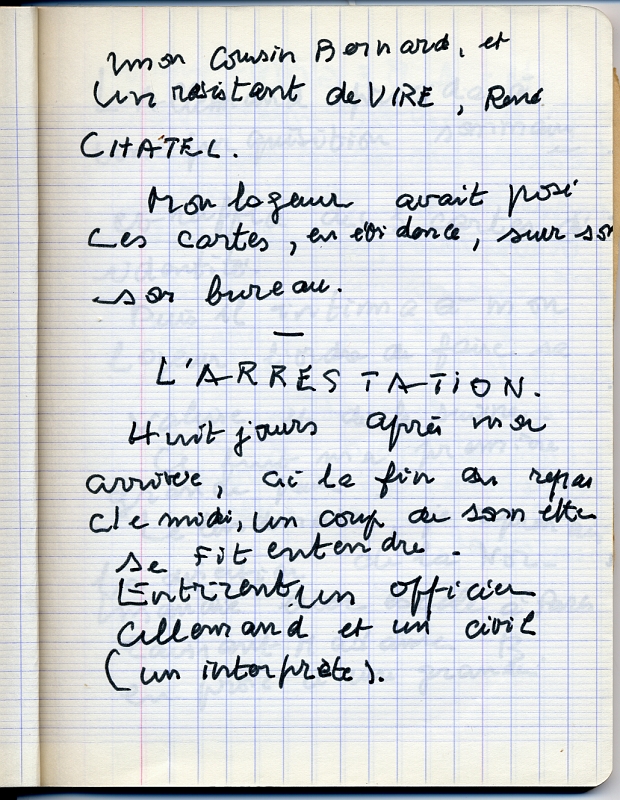 mon Cousin Bernard, et
Un résistant de VIRE, René
CHATEL.
Mon logeur avait posé
Les cartes, en évidence, sur so
son bureau.
—
L'ARRESTATION.
Huit jours après mon
arrivée, à la fin du repas
de midi, un coup de sonnette
se fit entendre.
Entrèrent, un officier
allemand et un civil
(un interprète).